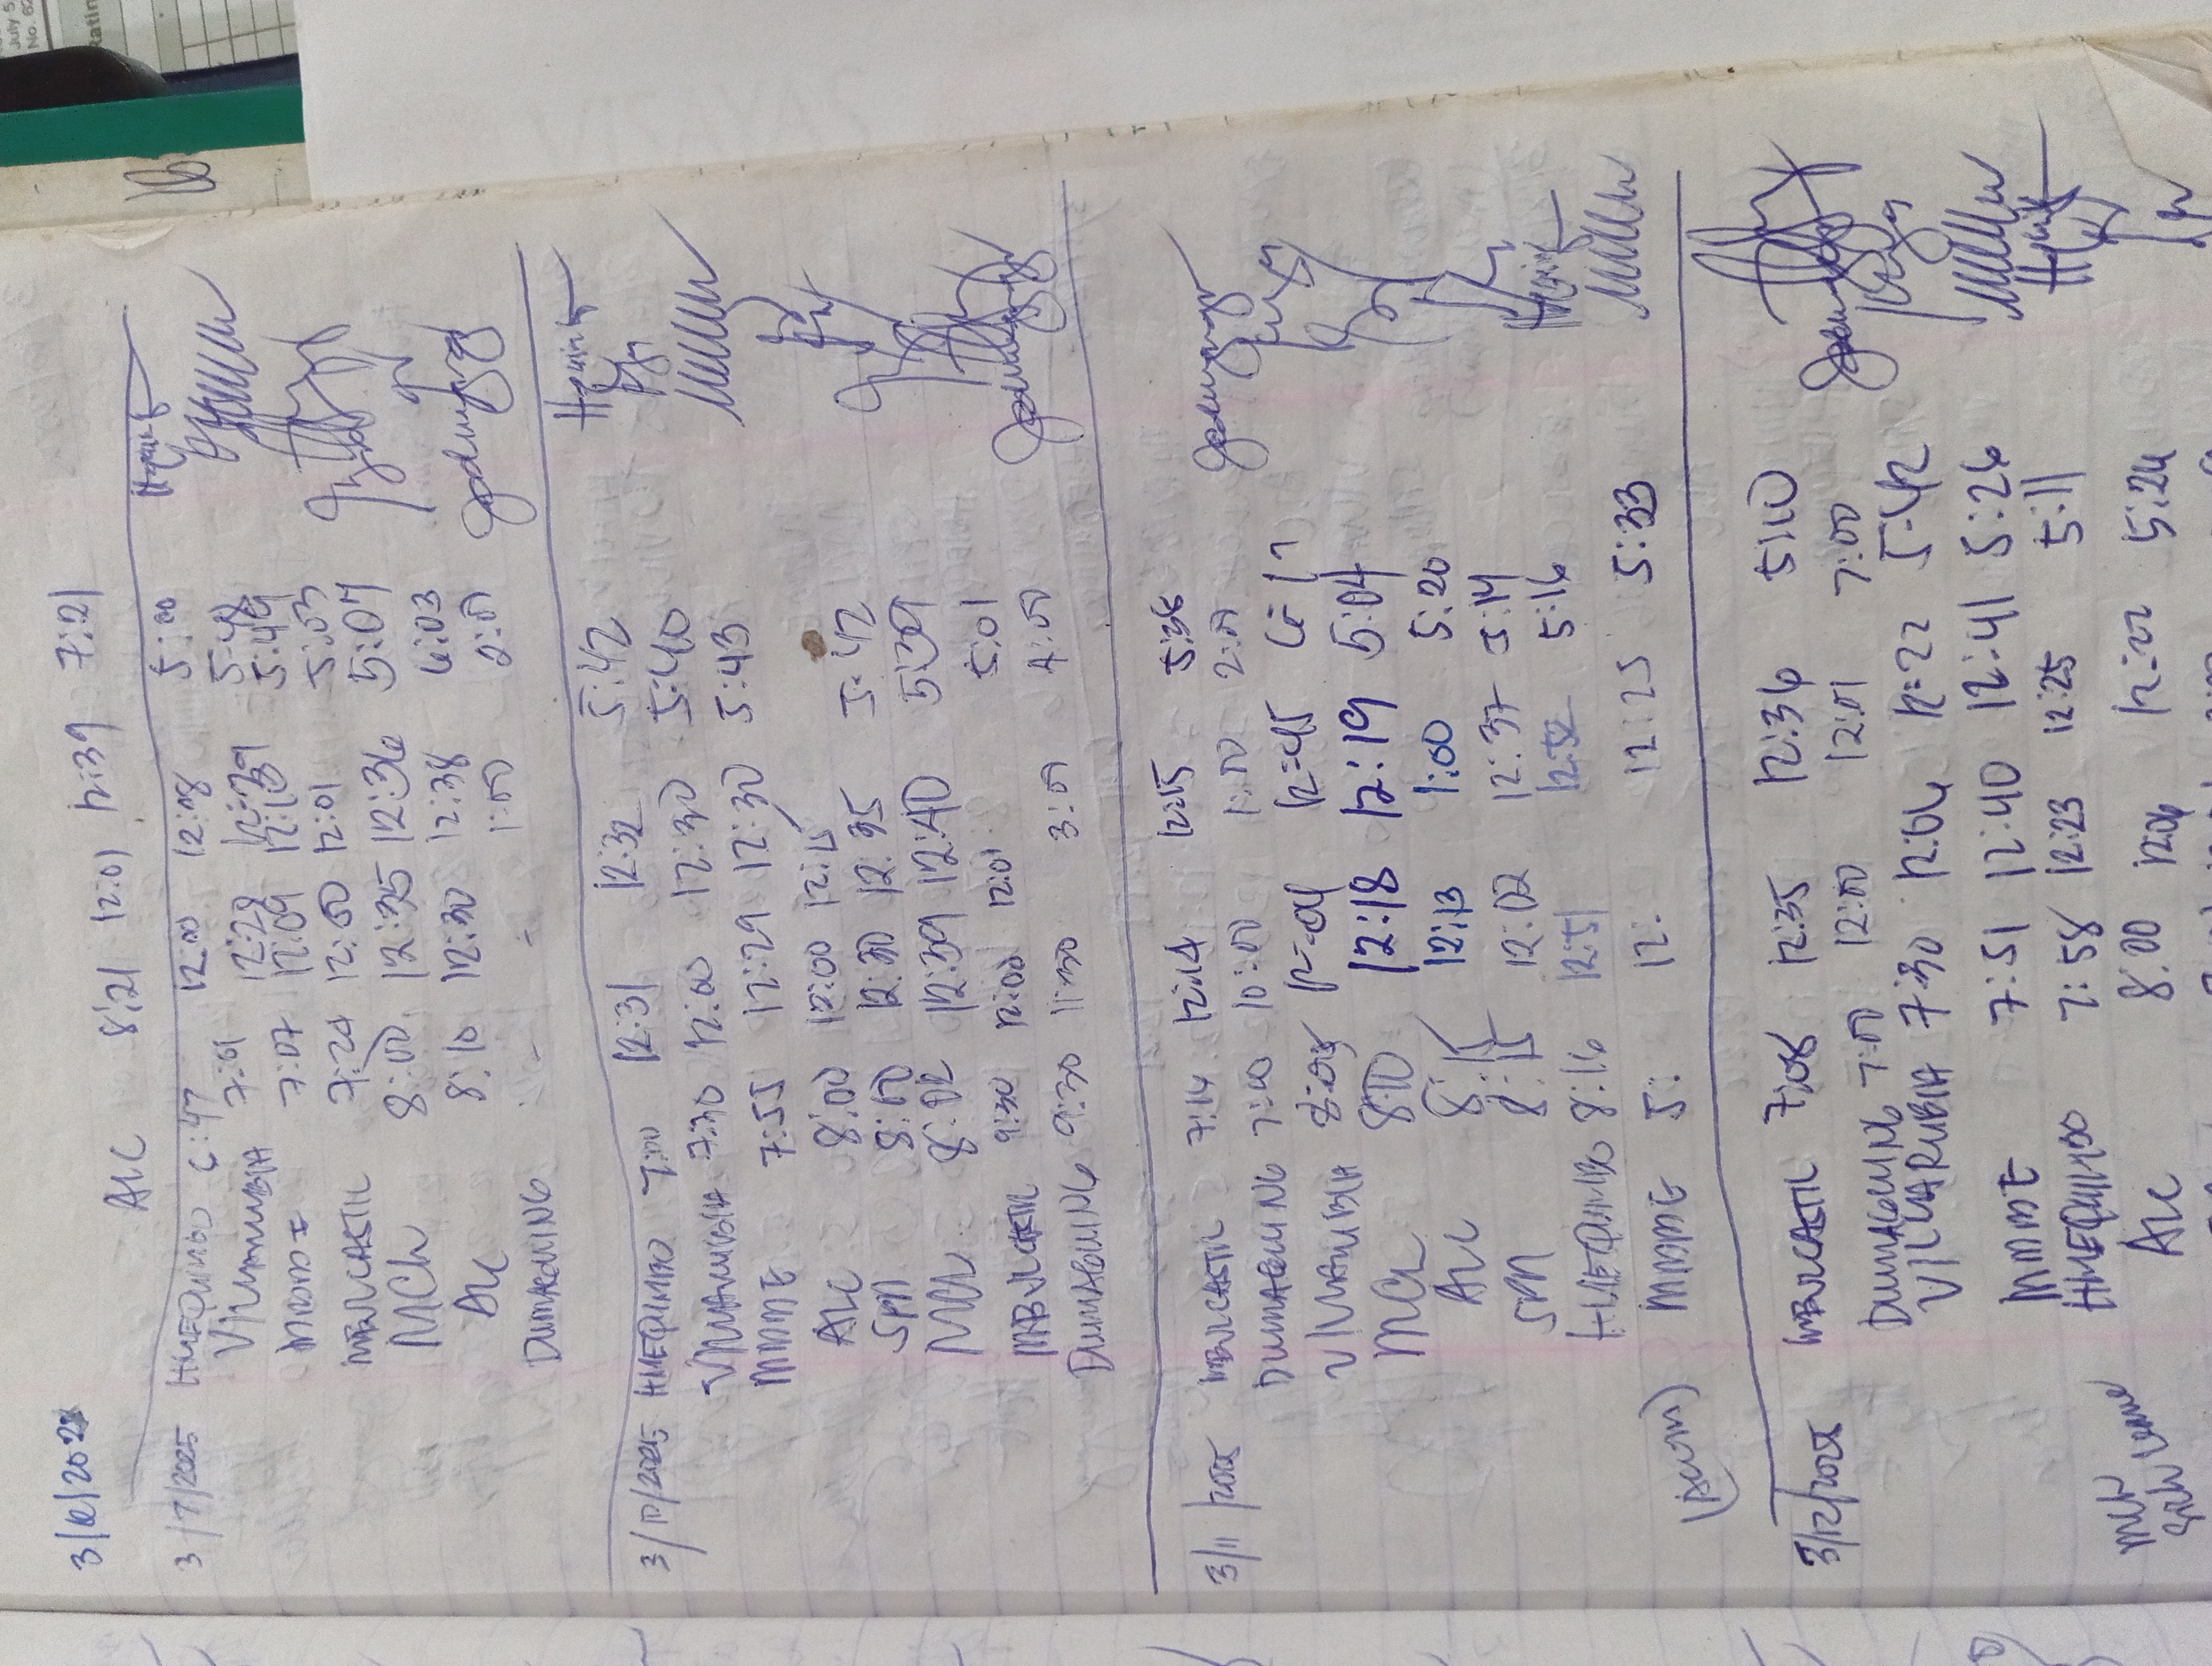 July 5,
No. 62
Rating
3/6/202
ALC 8:21 12:01 12:39 7:21
3/7/2025 HMEQUIMBO 6:47 12:00 12:08 5:00
7:01 12:28 12:29 5:48
MMDDE 7:07 12:09 12:10 5:49
MBVLCASTIL 7:24 12:00 12:01 5:03
MCL 8:00 12:35 12:36 5:07
ALC 8:10 12:30 12:38 6:03
DUMAGUING - - 1:00 2:00
3/10/2025 HMEQUIMBO 7:00 12:31 12:32 5:42
VILLARUBIA 7:30 12:00 12:30 5:40
MMDDE 7:55 12:29 12:30 5:43
ALC 8:00 12:00 12:15
SPM 8:00 12:30 12:35 5:42
MCL 8:02 12:39 12:40 5:39
MBVLCASTIL 9:30 12:00 12:01 5:01
DUMAGUING 9:30 11:30 3:00 4:00
3/11/2025 MBVLCASTIL 7:14 12:14 12:15 5:36
DUMAGUING 7:00 10:00 1:00 2:00
VILLARUBIA 8:05 12:04 12:45
MCL 8:10 12:18 12:19 5:04
ALC 8:15 12:13 1:00 5:20
SPM 8:15 12:02 12:37 5:14
HMEQUIMBO 8:16 12:51 12:52 5:16
MMDDE 5: 12: 12:25 5:33
3/12/2025 MBVLCASTIL 7:06 12:35 12:36 5:10
DUMAGUING 7:00 12:00 12:01 7:00
VILLARUBIA 7:30 12:04 12:22 5:42
MMDDE 7:51 12:40 12:41 5:26
HMEQUIMBO 7:58 12:23 12:25 5:11
ALC 8:00 12:04 12:22 5:24
MCL